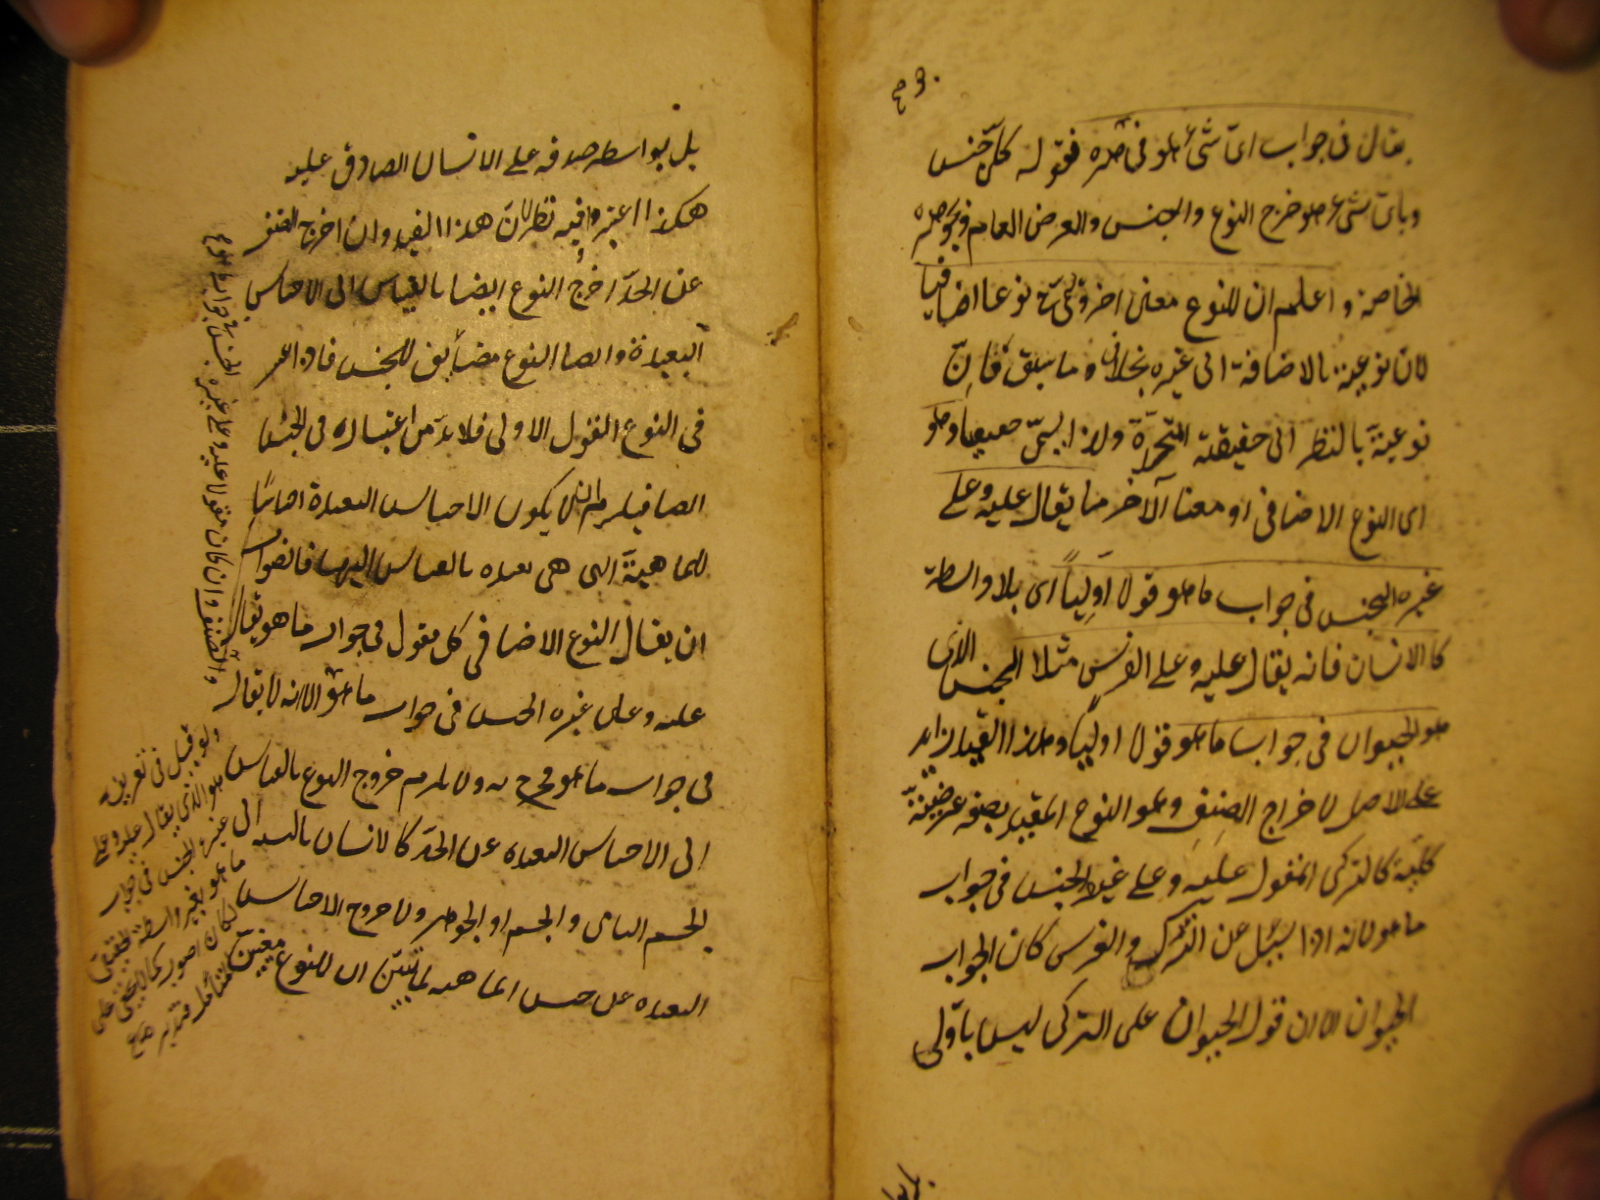 يقال فى جواب اىّ شئ هو فى فقوله كلّ جنس
وباىّ شئ هو خرج النوع والجنس والعرض العام
الخاصة واعلم ان للنوع معنى اخر نوعا اضافيا
لان نوعيته بالاضافة الى غيره بخلاف ما سبق فانّ
نوعيته بالنظر الى حقيقته المتحدة ولذا يسمّى حقيقيا وهو
اى النوع الاضافى او معناه الآخر ما يقال عليه وعلى
غيره الجنس فى جواب ما هو قولا اوّليّاً اى بلا واسطة
كالانسان فانه يقال عليه وعلى الفرس مثلا الجنس الذى
هو الحيوان فى جواب ما هو قولا اوليّا وهذا القيد زايد
على الاصل لاخراج الصنف وهو النوع المقيد بصفة عرضيّة
كلية كالتركى المقول عليه وعلى غيره الجنس فى جواب
ما هو لانه اذا سئل عن الترك والفرس كان الجواب
الحيوان الا ان قول الحيوان على التركى ليس باوّلى
بل بواسطة صدقه على الانسان الصادق عليه
هكذا اعتبروا فيه نظر لانّ هذا القيد وان اخرج الصنف
عن الحدّ اخرج النوع ايضا بالقياس الى الاجناس
البعيدة وايضا النوع مضايف للجنس فاذا اعتبر
فى النوع القول الاولى فلا بدّ من اعتباره فى الجنس
ايضا فيلزم ان لا يكون الاجناس البعيدة اجناسًا
للماهية التى هى بعيدة بالقياس اليها فالصواب
ان يقال النوع الاضافى كل مقول فى جواب ما هو يقال
عليه وعلى غيره الجنس فى جواب ما هو الا انه لا يقال
فى جواب ما هو ولا يلزم خروج النوع بالقياس
الى الاجناس البعيدة عن الحدّ كالانسان بالنسبة الى
الجسم النامى والجسم او الجوهر ولا خروج الاجناس
البعيدة عن جنس الماهية تبيّن ان للنوع معنيين
والصنف وان كان مقولا عليه وعلى غيره الجنس فى جواب ما هو
ولو قيل فى تعريفه
هو الذى يقال عليه وعلى
غيره الجنس فى جواب
ما هو بغير واسطة
لكان اصوب كما لا يخفى على